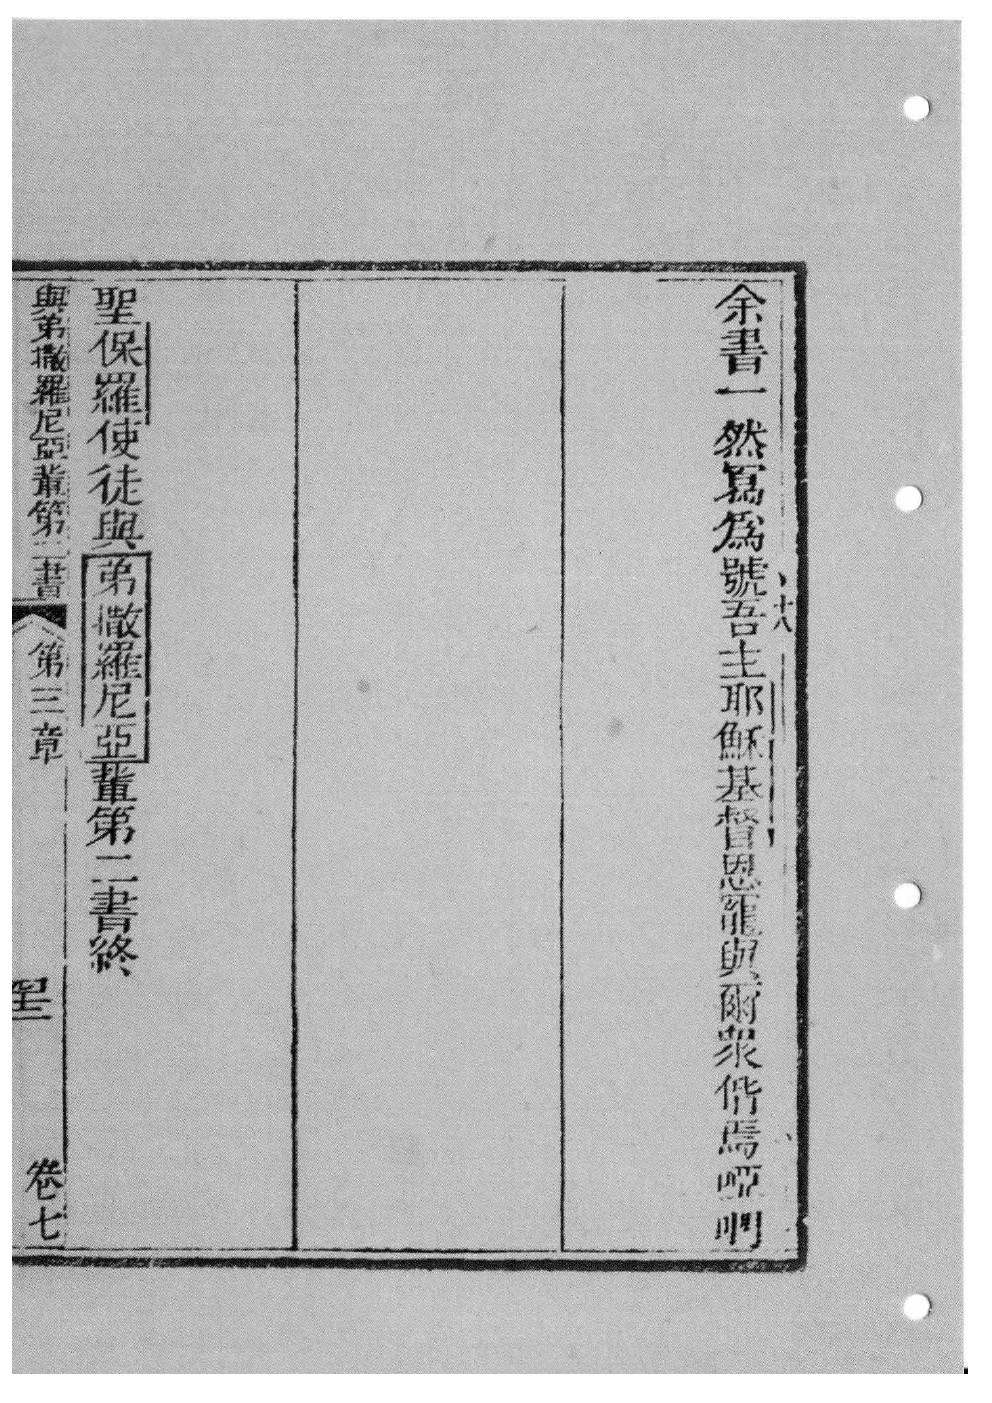 余書一然寫爲號吾主耶穌基督恩寵與爾眾偕焉啞們
十八
聖保羅使徒與弟撒羅尼亞輩第二書終
與弟撒羅尼亞輩第二書 第三章 卷七